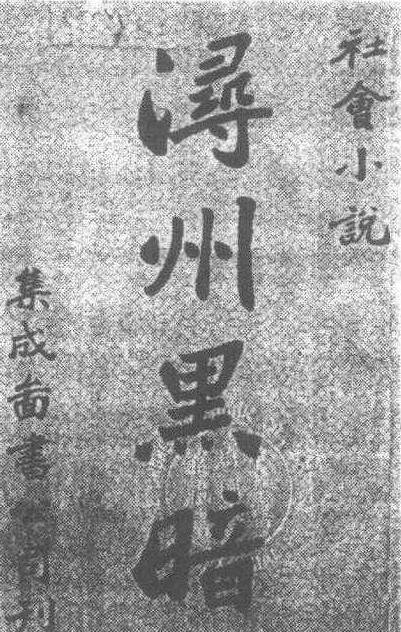 社會小說
潯州黑暗
集成啚書司刊